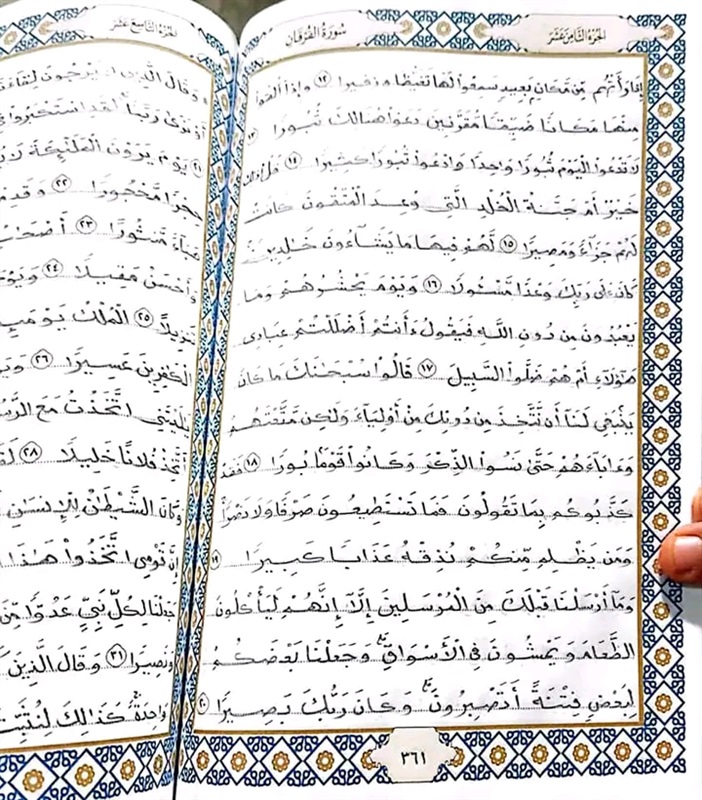 الجزء الثامن عشر
سورة الفرقان
إذا رأتهم من مكان بعيد سمعوا لها تغيظا وزفيرا ١٢ وإذا ألقوا
منها مكانا ضيقا مقرنين دعوا هنالك ثبورا ١٣
لا تدعوا اليوم ثبورا واحدا وادعوا ثبورا كثيرا ١٤ قل أذلك
خير أم جنة الخلد التي وعد المتقون كانت
لهم جزاء ومصيرا ١٥ لهم فيها ما يشاءون خلدين
كان على ربك وعدا مسئولا ١٦ ويوم يحشرهم وما
يعبدون من دون الله فيقول ءأنتم أضللتم عبادى
هؤلاء أم هم ضلوا السبيل ١٧ قالوا سبحنك ما كان
ينبغى لنا أن نتخذ من دونك من أولياء ولكن متعتهم
وءاباءهم حتى نسوا الذكر وكانوا قوما بورا ١٨ فقد
كذبوكم بما تقولون فما تستطيعون صرفا ولا نصرا
ومن يظلم منكم نذقه عذابا كبيرا ١٩
وما أرسلنا قبلك من المرسلين إلا إنهم ليأكلون
الطعام ويمشون فى الأسواق وجعلنا بعضكم
لبعض فتنة أتصبرون وكان ربك بصيرا ٢٠
٣٦١
الجزء التاسع عشر
وقال الذين لا يرجون لقاءنا
أو نرى ربنا لقد استكبروا في
٢١ يوم يرون الملئكة لا
حجرا محجورا ٢٢
هباء منثورا ٢٣ أصحاب
وأحسن مقيلا ٢٤ ويوم
تنزيلا ٢٥ الملك يومئذ
الكفرين عسيرا ٢٦
يليتنى اتخذت مع الرسول
أتخذ فلانا خليلا ٢٨
وكان الشيطن للإنسن
إن قومى اتخذوا هذا
جعلنا لكل نبي عدوا من
ونصيرا ٣١ وقال الذين
واحدة كذلك لنثبت